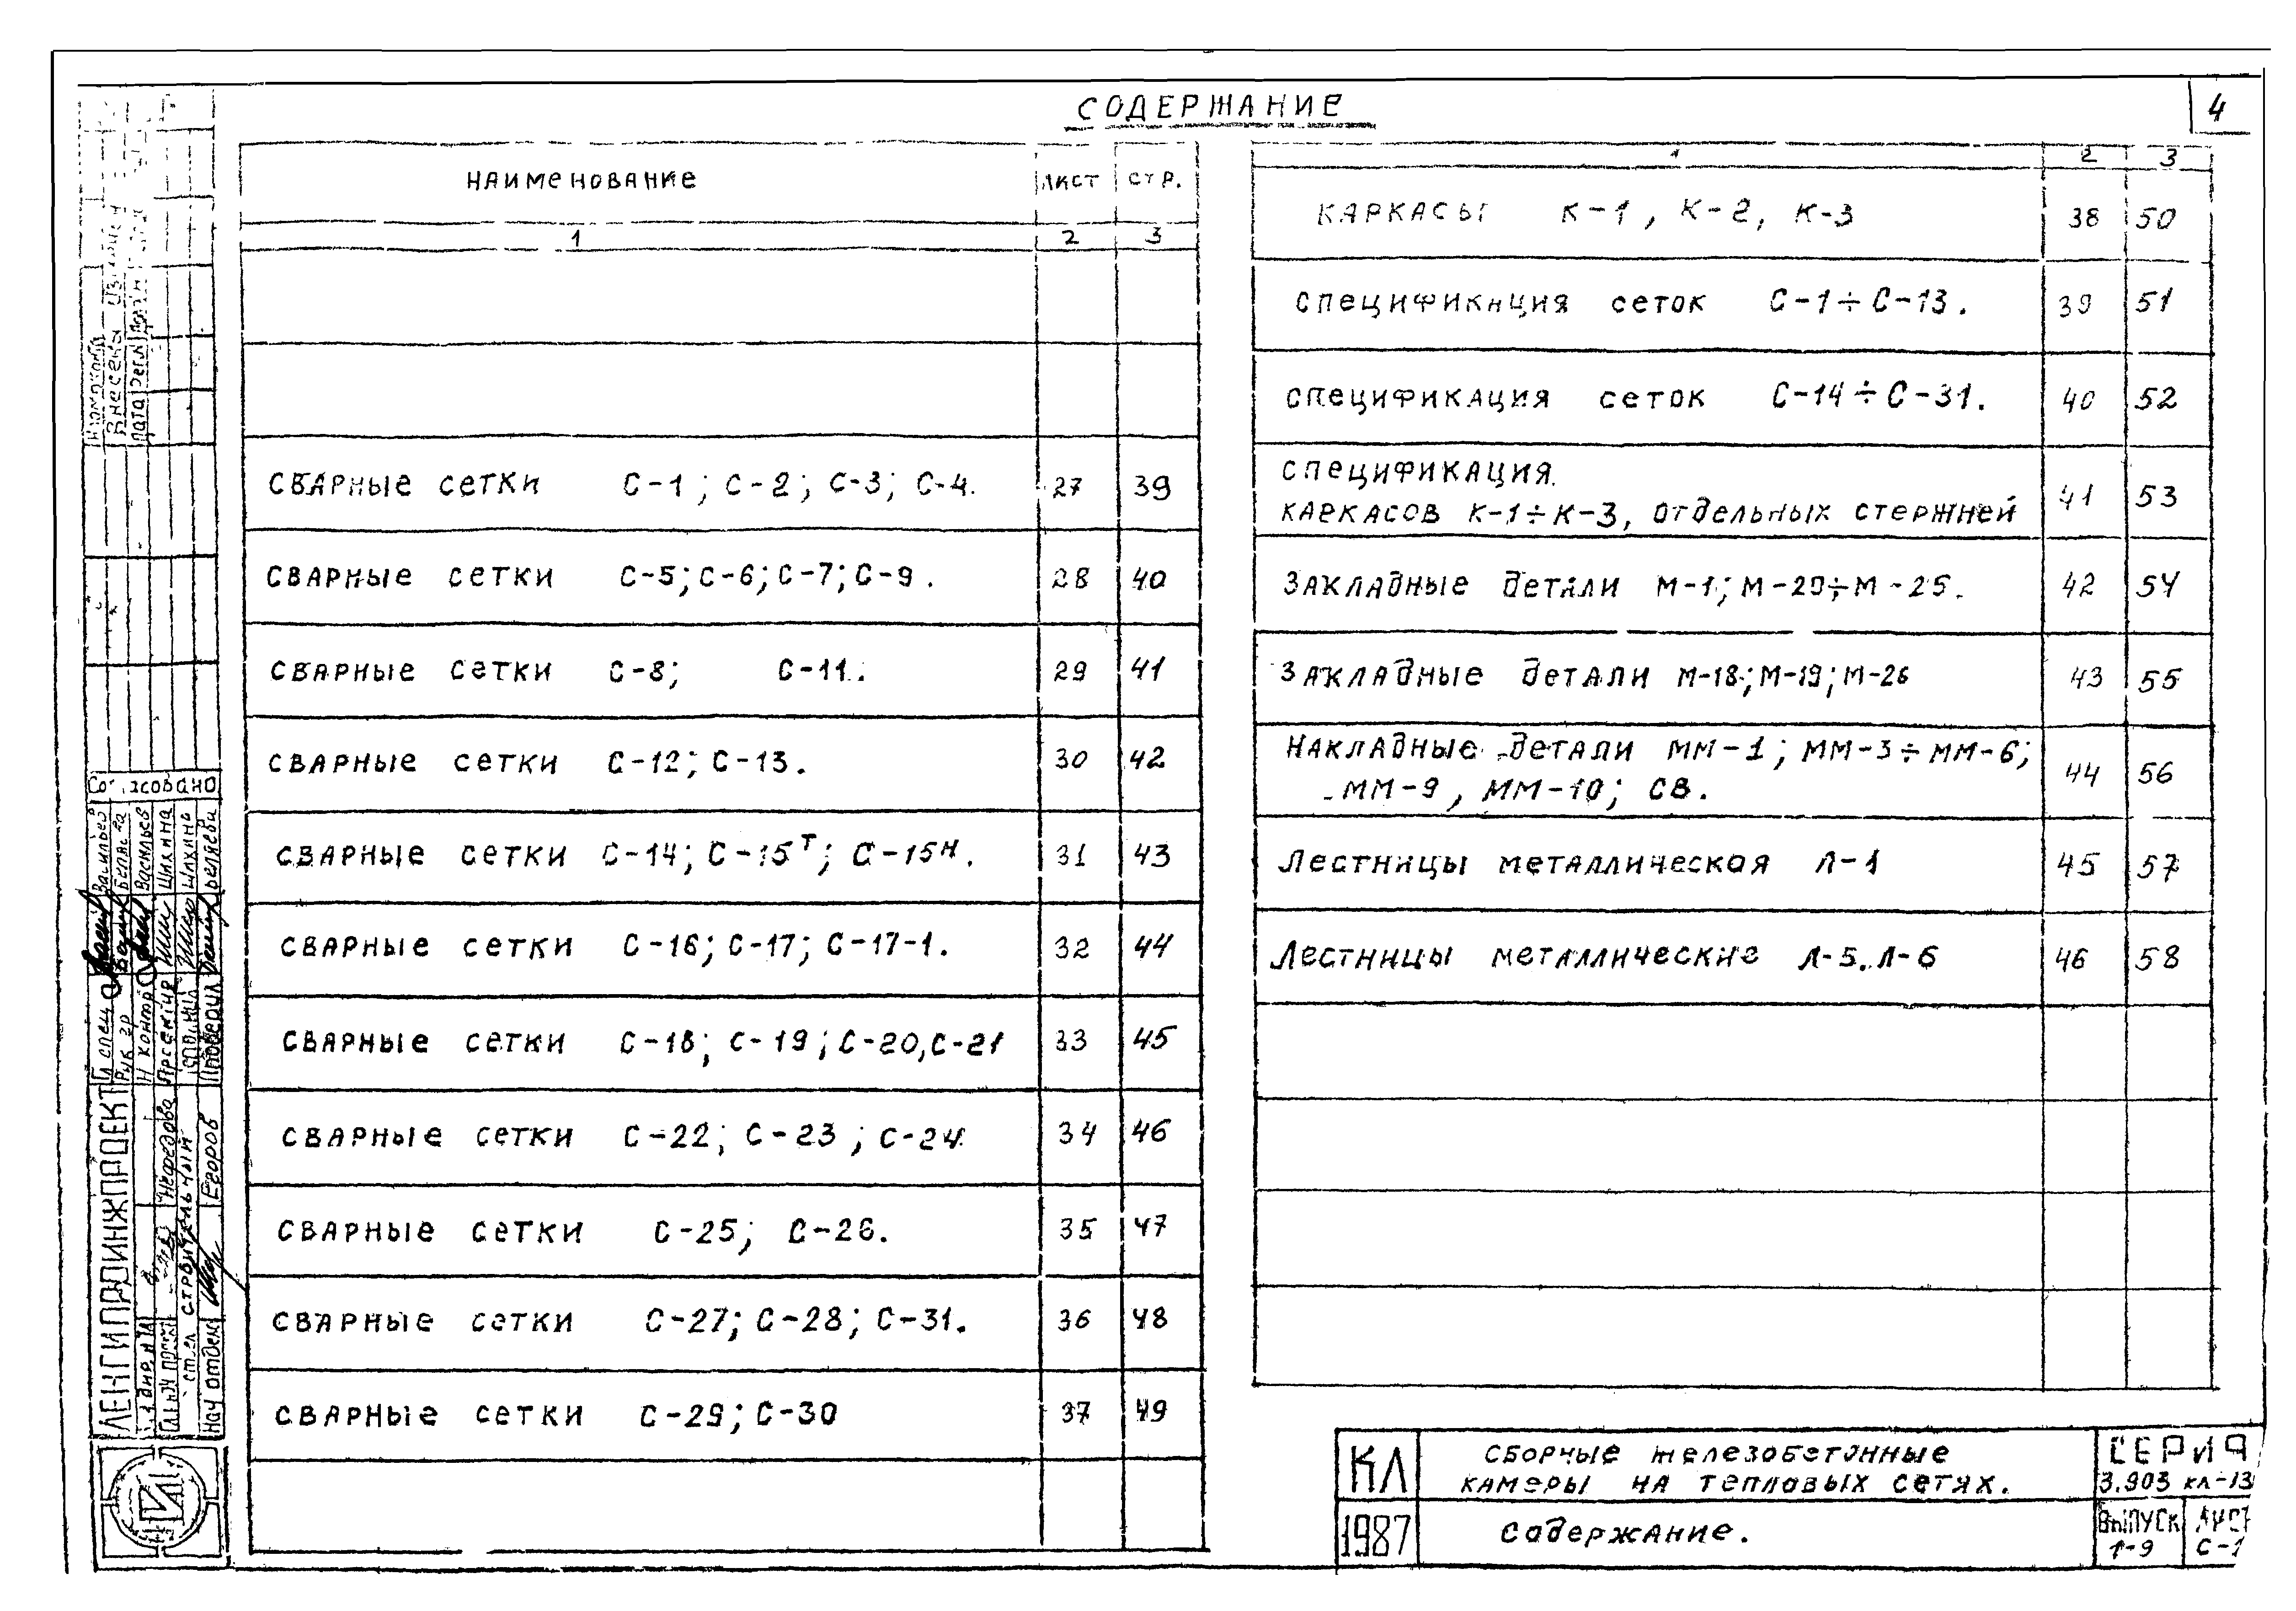 СОДЕРЖАНИЕ
4
НАИМЕНОВАНИЕ ЛИСТ СТР.
1 2 3
СВАРНЫЕ СЕТКИ С-1; С-2; С-3; С-4. 27 39
СВАРНЫЕ СЕТКИ С-5; С-6; С-7; С-9. 28 40
СВАРНЫЕ СЕТКИ С-8; С-11. 29 41
СВАРНЫЕ СЕТКИ С-12; С-13. 30 42
СВАРНЫЕ СЕТКИ С-14; С-15Т; С-15Н. 31 43
СВАРНЫЕ СЕТКИ С-16; С-17; С-17-1. 32 44
СВАРНЫЕ СЕТКИ С-18; С-19; С-20, С-21 33 45
СВАРНЫЕ СЕТКИ С-22; С-23; С-24. 34 46
СВАРНЫЕ СЕТКИ С-25; С-26. 35 47
СВАРНЫЕ СЕТКИ С-27; С-28; С-31. 36 48
СВАРНЫЕ СЕТКИ С-29; С-30 37 49
1 2 3
КАРКАСЫ К-1, К-2, К-3 38 50
СПЕЦИФИКАЦИЯ СЕТОК С-1÷С-13. 39 51
СПЕЦИФИКАЦИЯ СЕТОК С-14÷С-31. 40 52
СПЕЦИФИКАЦИЯ.
КАРКАСОВ К-1÷К-3, ОТДЕЛЬНЫХ СТЕРЖНЕЙ 41 53
ЗАКЛАДНЫЕ ДЕТАЛИ М-1; М-20÷М-25. 42 54
ЗАКЛАДНЫЕ ДЕТАЛИ М-18; М-19; М-26 43 55
НАКЛАДНЫЕ ДЕТАЛИ ММ-1; ММ-3÷ММ-6;
ММ-9, ММ-10; СВ. 44 56
ЛЕСТНИЦЫ МЕТАЛЛИЧЕСКАЯ Л-1 45 57
ЛЕСТНИЦЫ МЕТАЛЛИЧЕСКИЕ Л-5. Л-6 46 58
КЛ
СБОРНЫЕ ЖЕЛЕЗОБЕТОННЫЕ
КАМЕРЫ НА ТЕПЛОВЫХ СЕТЯХ.
СЕРИЯ
3.903 КЛ-13
1987
Содержание.
ВЫПУСК
1-9
ЛИСТ
С-1
Согласовано
Васильев
Васильев
Шахнина
Шахнина
Беляева
Гл спец
Рук гр
Н контр
Проверил
ЛЕНГИПРОИНЖПРОЕКТ
Нефедова
строительный
Нач отдела
Егоров
Внесены
Дата